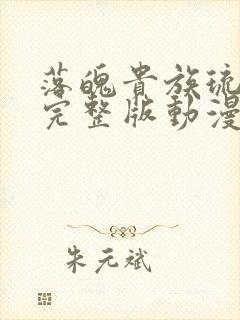 落魄貴族琉
完整版動漫
朱元斌